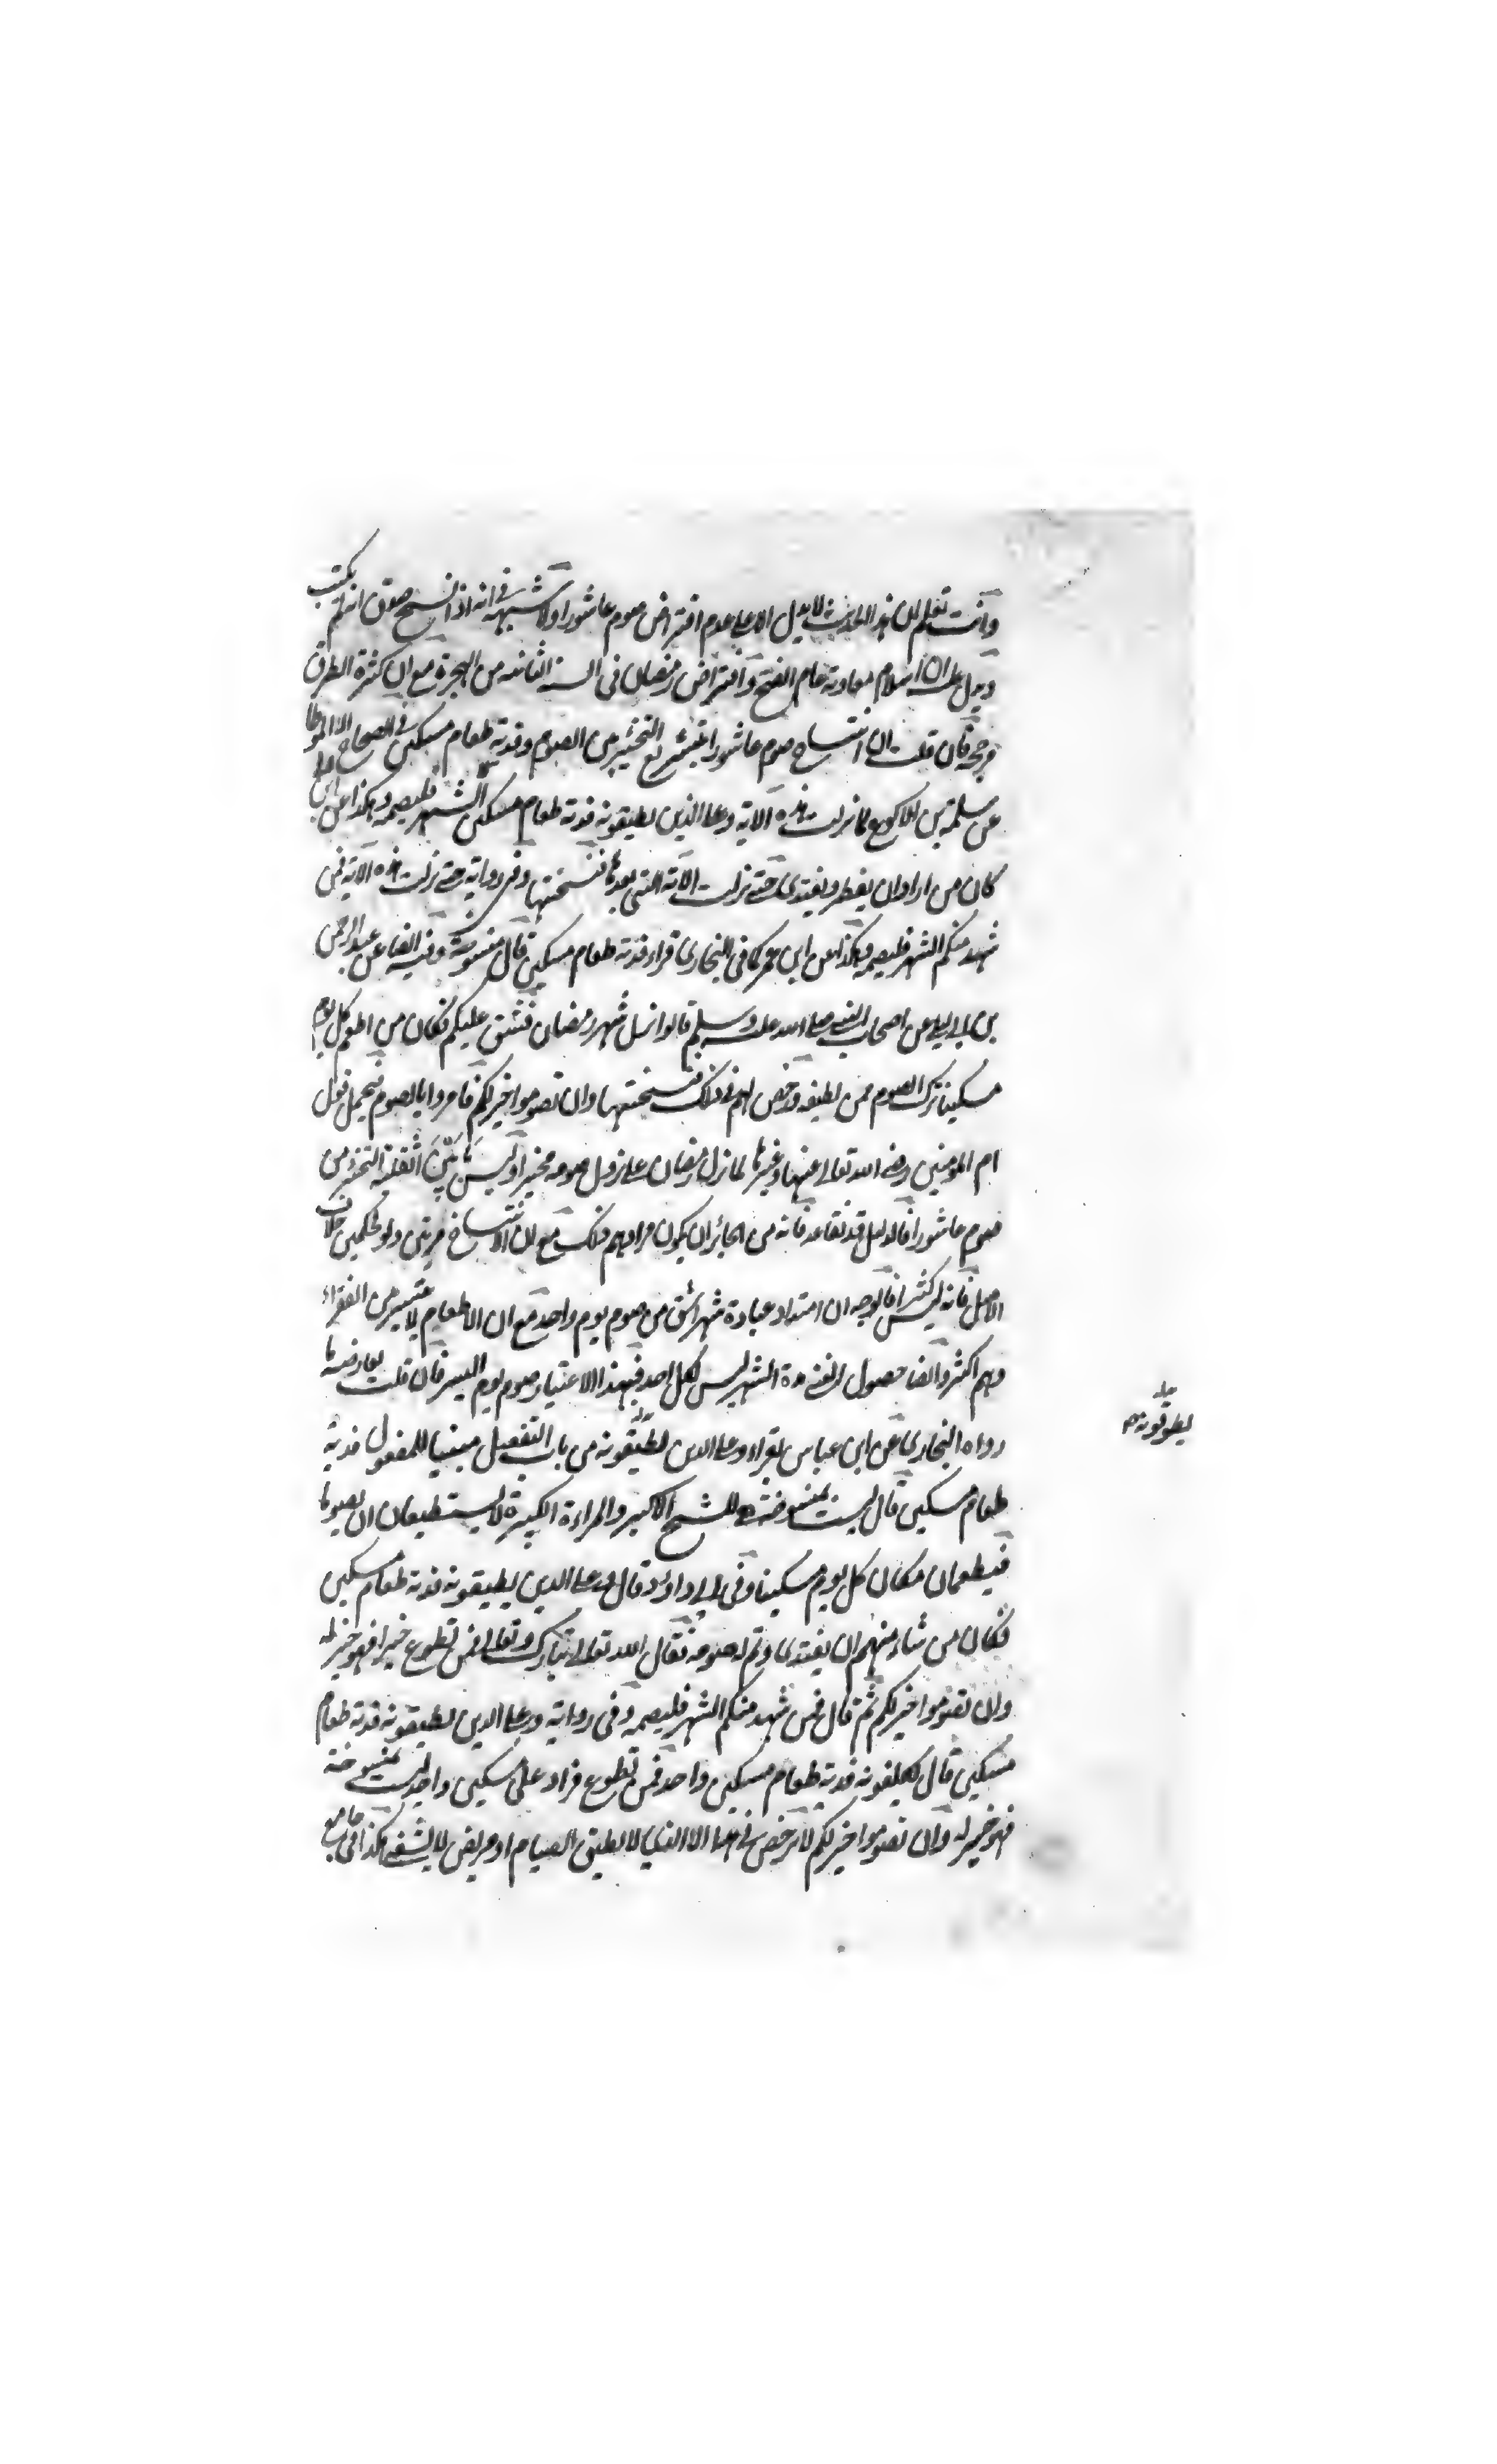 وانت تعلم ان هذا الحديث لا يدل الا على عدم افتراض صوم عاشورا ولا شبهة في انه اذا نسخ صدق انه لم يكتب
ويدل عليه ان اسلام معاوية عام الفتح وافتراض رمضان في السنة الثانية من الهجرة مع ان كثرة الطرق
مرجحة فان قلت ان انتساخ صوم عاشورا بتشريع التخيير من الصوم وفدية طعام مسكين في الصحاح الا الموطا
عن سلمة بن الاكوع لما نزلت هذه الاية وعلى الذين يطيقونه فدية طعام مسكين
كان من اراد ان يفطر ويفتدى حتى نزلت الاية التي بعدها فنسختها وفي رواية حتى نزلت هذه الاية فمن
شهد منكم الشهر فليصمه وهكذا عن ابن عمر كما في البخاري قراء فدية طعام مسكين قال منسوخة وفيه ايضا عن عبد الرحمن
بن ابي ليلى عن اصحاب النبي صلى الله عليه وسلم قالوا نزل شهر رمضان فشق عليكم فكان من اطعم كل يوم
مسكينا ترك الصوم ممن يطيقه ورخص لهم في ذلك فنسختها وان تصوموا خير لكم فامروا بالصوم فيحمل قول
ام المومنين رضي الله تعالى عنها وغيرها لما نزل رمضان على نزول صومه مخيرا وليس
صوم عاشورا فالدليل قد تقاعد فانه من الجائز ان يكون مرادهم ذلك مع ان الانتساخ مرتين ولو لحكمين خلاف
الاصل فانه ليس كثيرا فالوجه ان امتداد عبادة شهر اشق من صوم يوم واحد مع ان الاطعام لا يتيسر من الفقراء
وهم اكثر وايضا حصول الشهر ليس لكل احد فبهذا الاعتبار صوم يوم اليسر فان قلت يعارضه ما
رواه البخاري عن ابن عباس يقراء وعلى الذين يطيقونه من باب التفعيل مبنيا للمفعول فدية
طعام مسكين قال ليست بمنسوخة هي للشيخ الكبير والمراءة الكبيرة لا يستطيعان ان يصوما
فيطعمان مكان كل يوم مسكينا وفي ابي داود قال وعلى الذين يطيقونه فدية طعام مسكين
فكان من شاء منهم ان يفتدى وتم له صومه فقال الله تعالى تبارك وتعالى فمن تطوع خيرا فهو خير له
وان تصوموا خير لكم ثم قال فمن شهد منكم الشهر فليصمه وفي رواية وعلى الذين يطيقونه فدية طعام
مسكين قال يكلفونه فدية طعام مسكين واحد فمن تطوع فزاد على مسكين واحد ليست بمنسوخة
فهو خير له وان تصوموا خير لكم لا يرخص في هذا الا الذي لا يطيق الصيام او مريض لا يشفى هكذا في جامع
يطوقونه